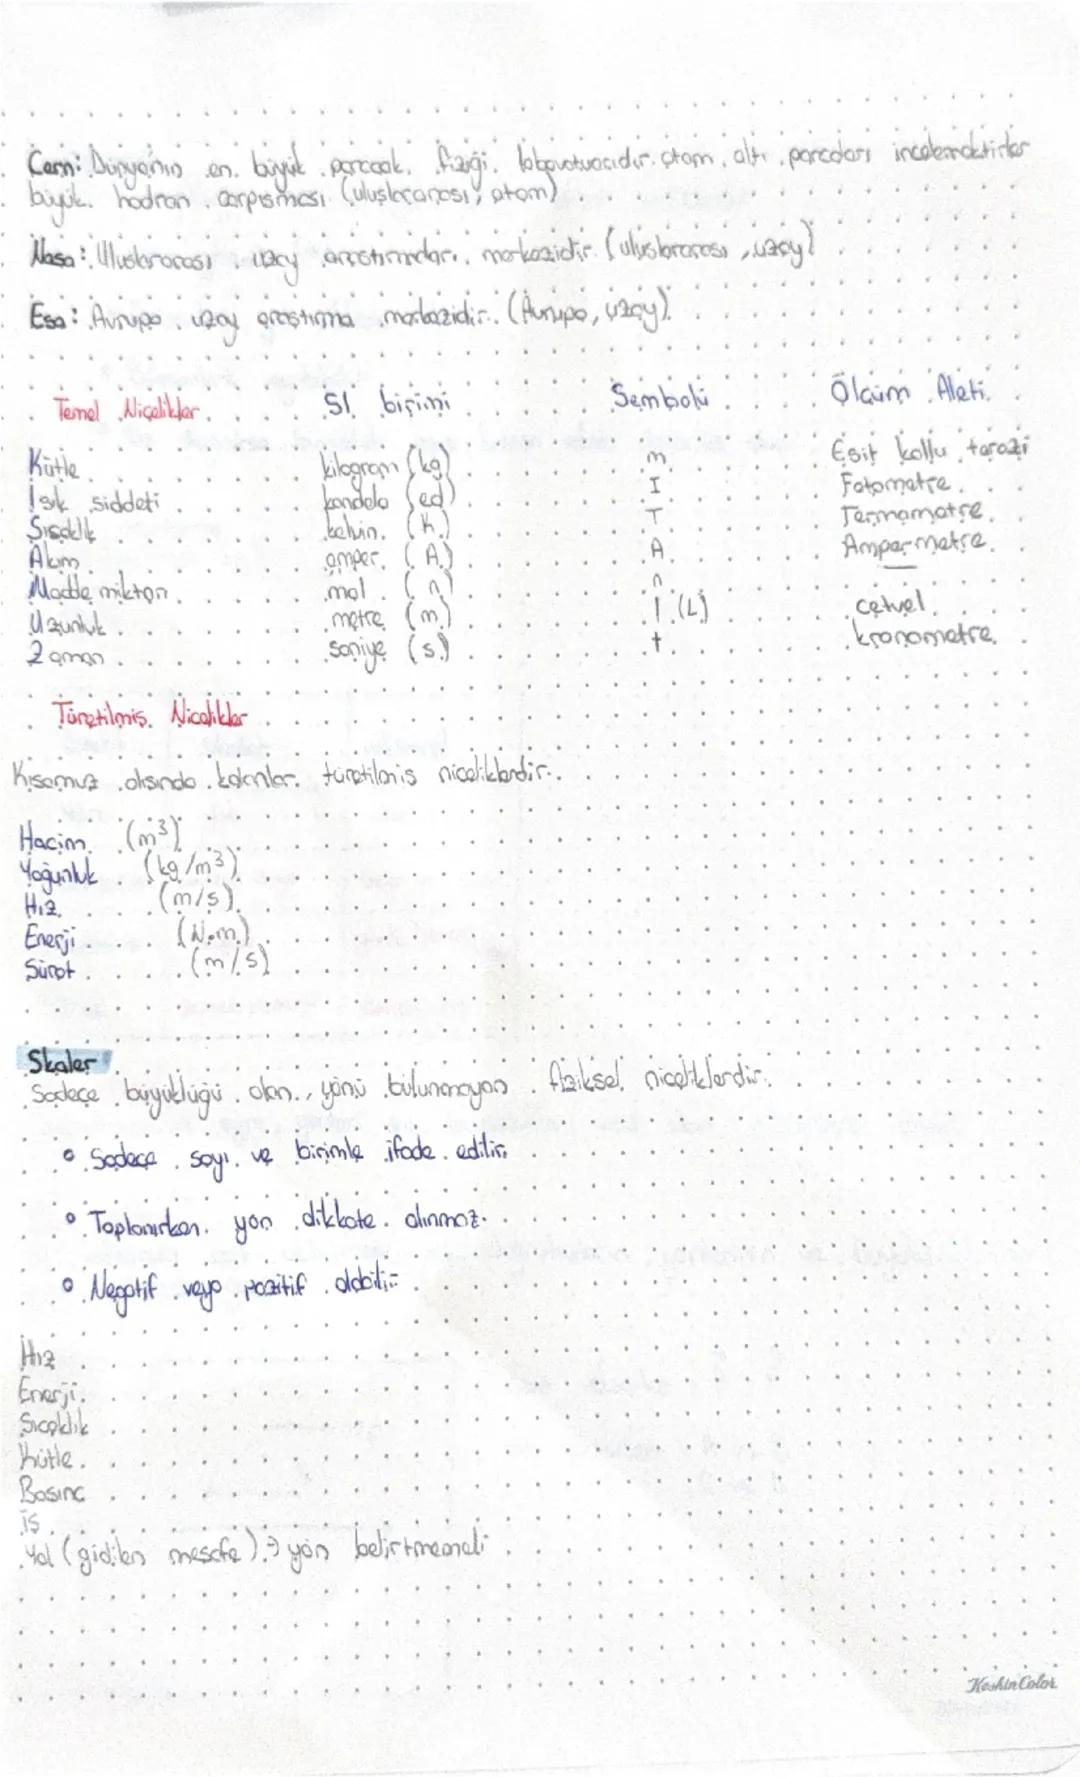 Cern: Dünyanın en büyük parçacık fiziği laboratuvarıdır. atom altı parçaları incelemektirler
büyük hadron çarpışması (uluslararası, atom)
Nasa: Uluslararası uzay araştırmaları merkezidir. (uluslararası, uzay)
Esa: Avrupa uzay araştırma merkezidir. (Avrupa, uzay)
Temel Niçelikler SI birimi Sembolü Ölçüm Aleti
Kütle kilogram (kg) m Eşit kollu terazi
Işık şiddeti kandela (cd) I Fotometre
Sıcaklık kelvin (K) T Termometre
Akım amper (A) A Ampermetre
Madde miktarı mol (n) n —
Uzunluk metre (m) l (L) cetvel
Zaman saniye (s) t kronometre
Türetilmiş Nicelikler
Kısamuz dışında kalanlar türetilmiş niceliklerdir.
Hacim (m³)
Yoğunluk (kg/m³)
Hız (m/s)
Enerji (N.m)
Sürat (m/s)
Skaler
Sadece büyüklüğü olan, yönü bulunmayan fiziksel niceliklerdir.
• Sadece sayı ve birimle ifade edilir.
• Toplanırken yön dikkate alınmaz.
• Negatif veya pozitif olabilir
Hız
Enerji
Sıcaklık
Kütle
Basınç
İş
Yol (gidilen mesafe) → yön belirtmemeli
KeskinColor